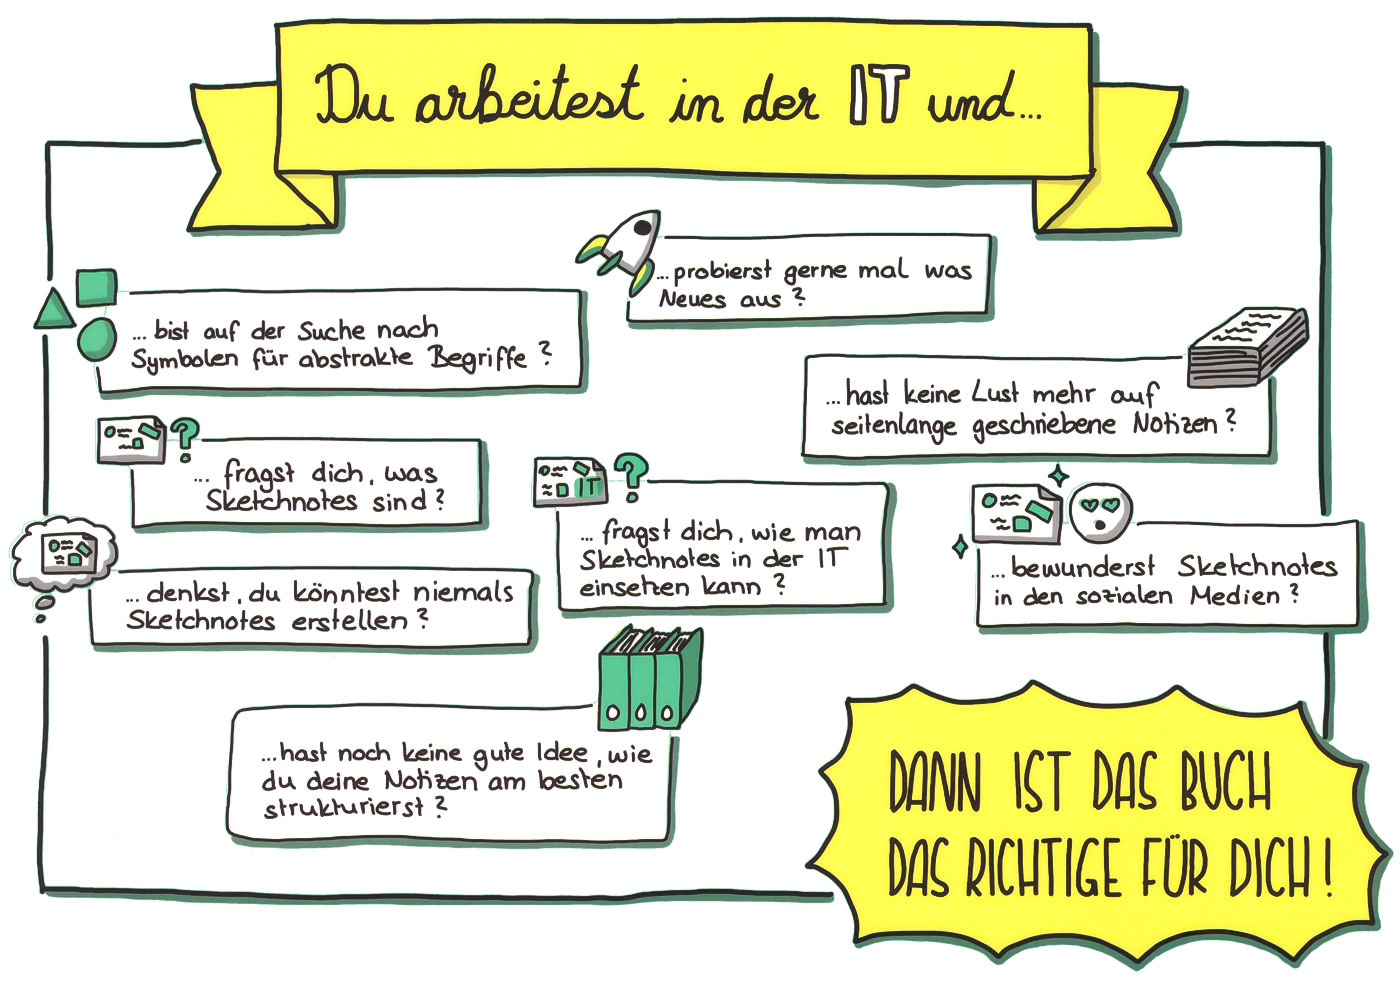 Du arbeitest in der IT und...
...probierst gerne mal was
Neues aus?
...bist auf der Suche nach
Symbolen für abstrakte Begriffe?
...hast keine Lust mehr auf
seitenlange geschriebene Notizen?
... fragst dich, was
Sketchnotes sind?
IT
... fragst dich, wie man
Sketchnotes in der IT
einsetzen kann?
...bewunderst Sketchnotes
in den sozialen Medien?
...denkst, du könntest niemals
Sketchnotes erstellen?
...hast noch keine gute Idee, wie
du deine Notizen am besten
strukturierst?
DANN IST DAS BUCH
DAS RICHTIGE FÜR DICH!